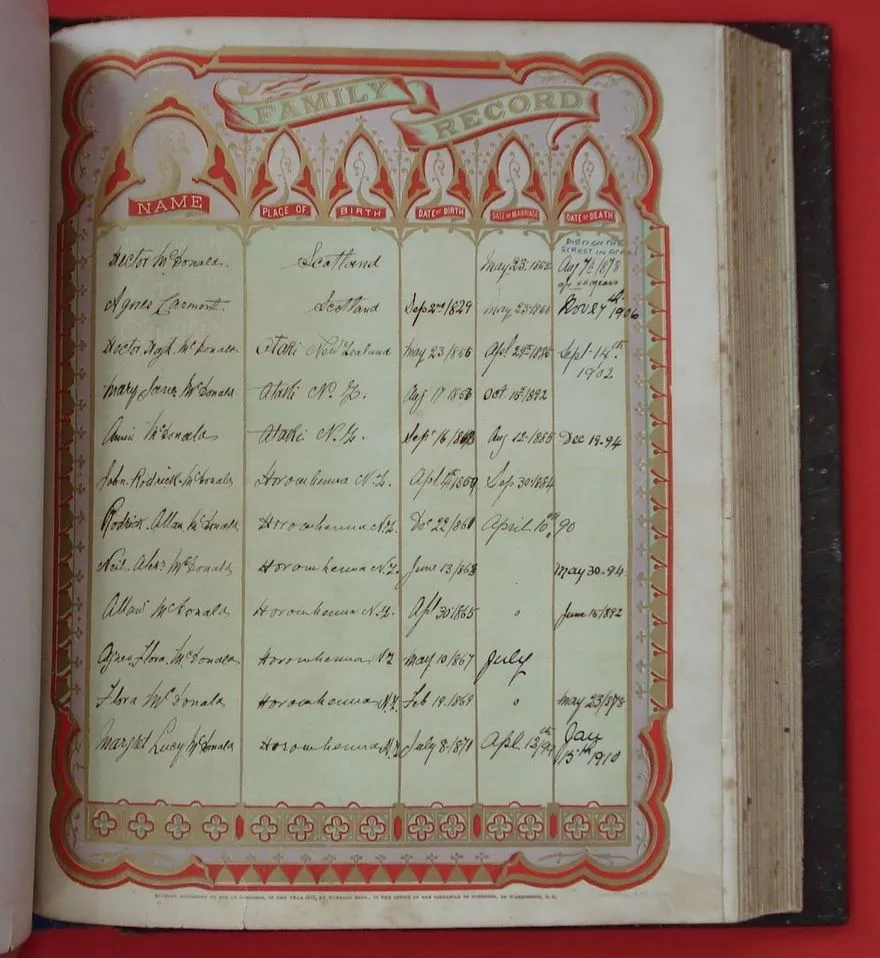 FAMILY RECORD
NAME PLACE OF BIRTH DATE OF BIRTH DATE OF MARRIAGE DATE OF DEATH
DIED ON THE
STREET IN
Hector McDonald. Scotland May 23. Aug 7th 1878
Agnes Carmont. Scotland Sep 2nd/1829 May 23 Nov 27th 1906
Hector Hugh McDonald Otaki New Zealand May 23 Apl 29th Sept. 14th.
1902
Mary Jane McDonald Otaki N. Z. Aug 17 Oct 15th/1892
Annie McDonald Otaki N. Z. Sepr 16 Aug 12. 1885 Dec 19-94
John. Rodrick. McDonald Horowhenua N.Z. Apl. Sep 30
Rodrick. Allan McDonald Horowhenua N.Z. Dec 22/ April 10th 90
Neil. Alexr McDonald Horowhenua N.Z. June 13/ May 30. 94
McDonald Horowhenua N.Z. Apl 30 1865 June 15/892
Agnes. Flora. McDonald Horowhenua N.Z May 10/1867 July
Flora McDonald Horowhenua N.Z. Feb 19. 1869 May 23/
Margret Lucy McDonald Horowhenua N.Z July 8. 1871 Apl. 13th/ Jan
15th 1910
ENTERED ACCORDING TO ACT OF CONGRESS, IN THE YEAR IN THE OFFICE OF THE LIBRARIAN OF CONGRESS, AT WASHINGTON, D. C.